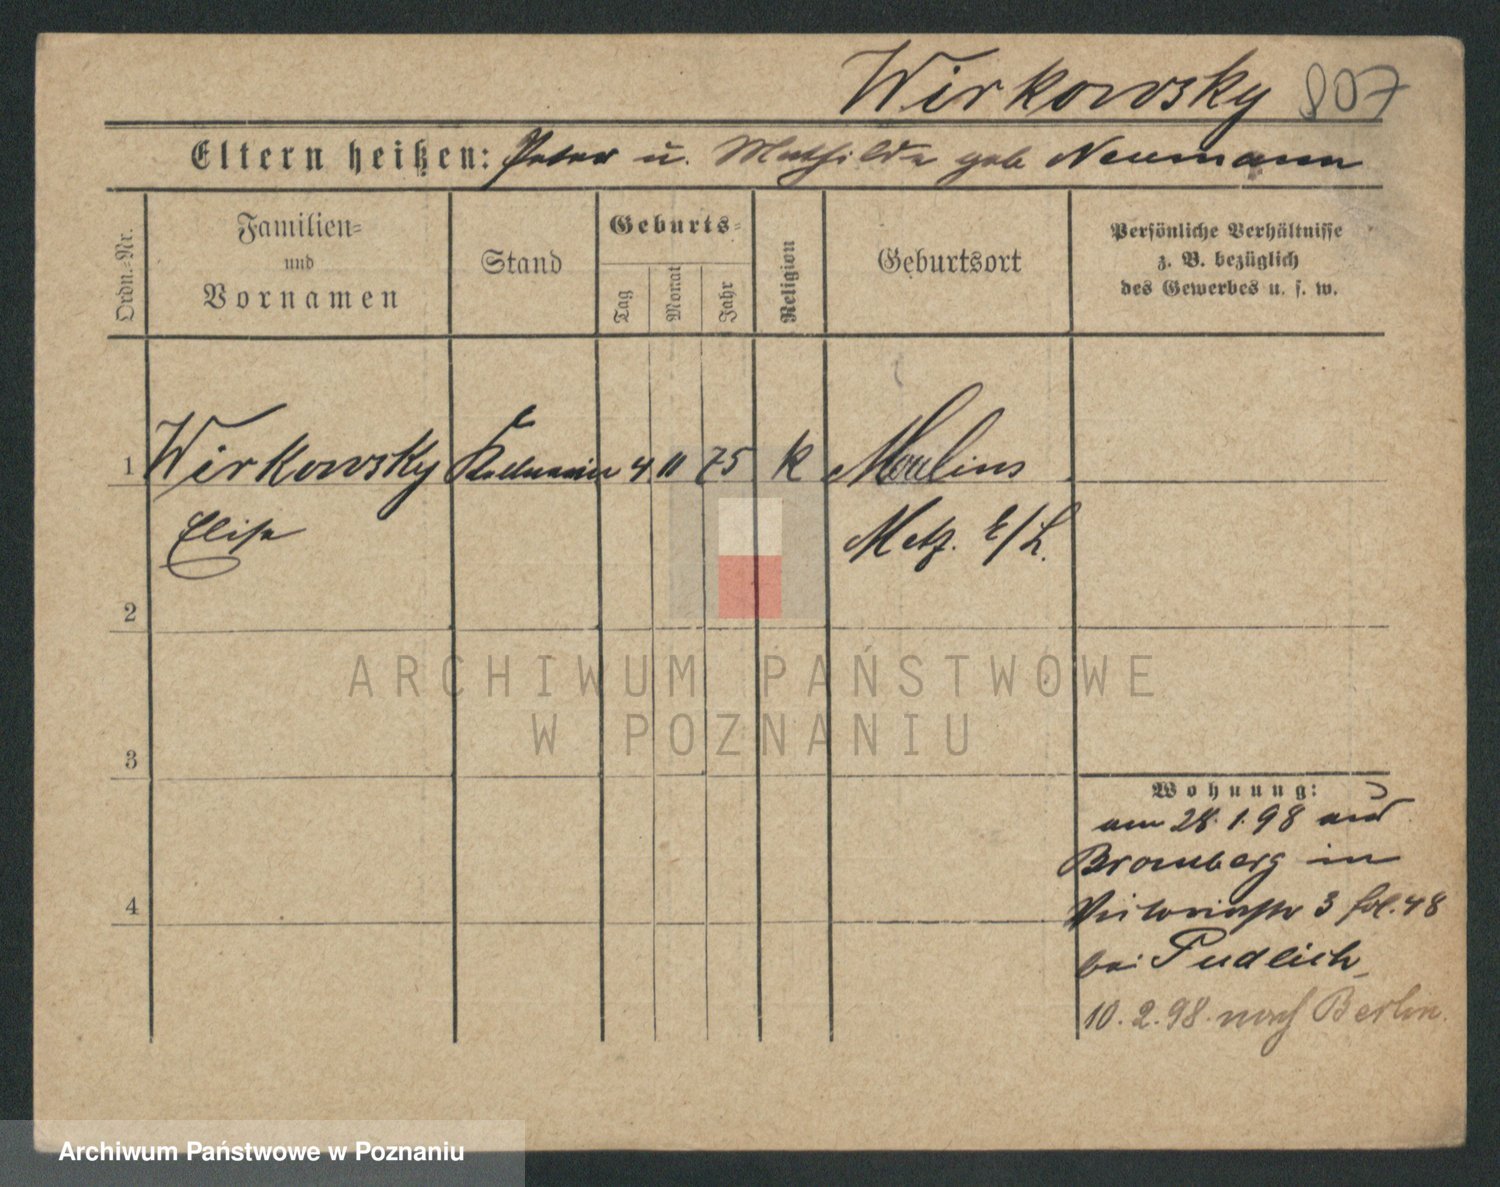 Wirkowsky 807
Eltern heißen: Peter u. Mathilde geb Neumann
Ordn.-Nr.
Familien-
und
Vornamen
Stand
Geburts-
Tag
Monat
Jahr
Religion
Geburtsort
Persönliche Verhältnisse
z. B. bezüglich
des Gewerbes u. s. w.
1 Wirkowsky Kellnerin 4 11 75 k Moulins
Elise Metz. E/L.
2
3
4
Wohnung:
am 28.1.98 aus
Bromberg in
Victoriastr 3 fol. 48
bei Pudlich
10.2.98. nach Berlin.
ARCHIWUM PAŃSTWOWE
W POZNANIU
Archiwum Państwowe w Poznaniu